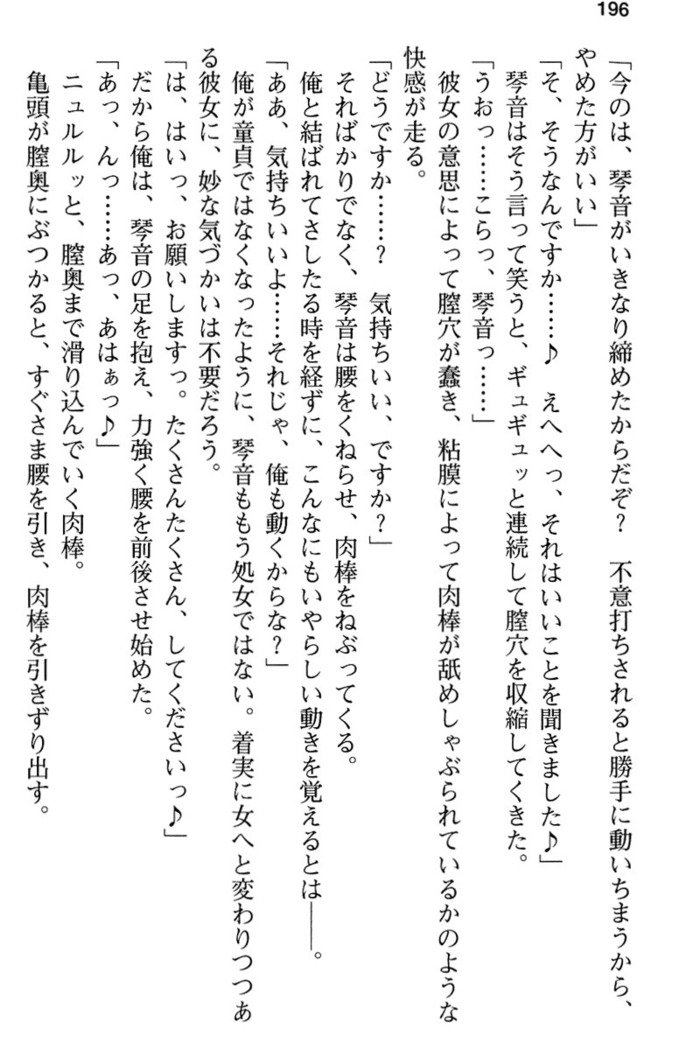 196
「今のは、琴音がいきなり締めたからだぞ？　不意打ちされると勝手に動いちまうから、
やめた方がいい」
「そ、そうなんですか……♪　えへへっ、それはいいことを聞きました♪」
琴音はそう言って笑うと、ギュギュッと連続して膣穴を収縮してくきた。
「うおっ……こらっ、琴音っ……」
彼女の意思によって膣穴が蠢き、粘膜によって肉棒が舐めしゃぶられているかのような
快感が走る。
「どうですか……？　気持ちいい、ですか？」
そればかりでなく、琴音は腰をくねらせ、肉棒をねぶってくる。
俺と結ばれてさしたる時を経ずに、こんなにもいやらしい動きを覚えるとは――。
「ああ、気持ちいいよ……それじゃ、俺も動くからな？」
俺が童貞ではなくなったように、琴音ももう処女ではない。着実に女へと変わりつつあ
る彼女に、妙な気づかいは不要だろう。
「は、はいっ、お願いしますっ。たくさんたくさん、してくださいっ♪」
だから俺は、琴音の足を抱え、力強く腰を前後させ始めた。
「あっ、んっ……あっ、あはぁっ♪」
ニュルルッと、膣奥まで滑り込んでいく肉棒。
亀頭が膣奥にぶつかると、すぐさま腰を引き、肉棒を引きずり出す。